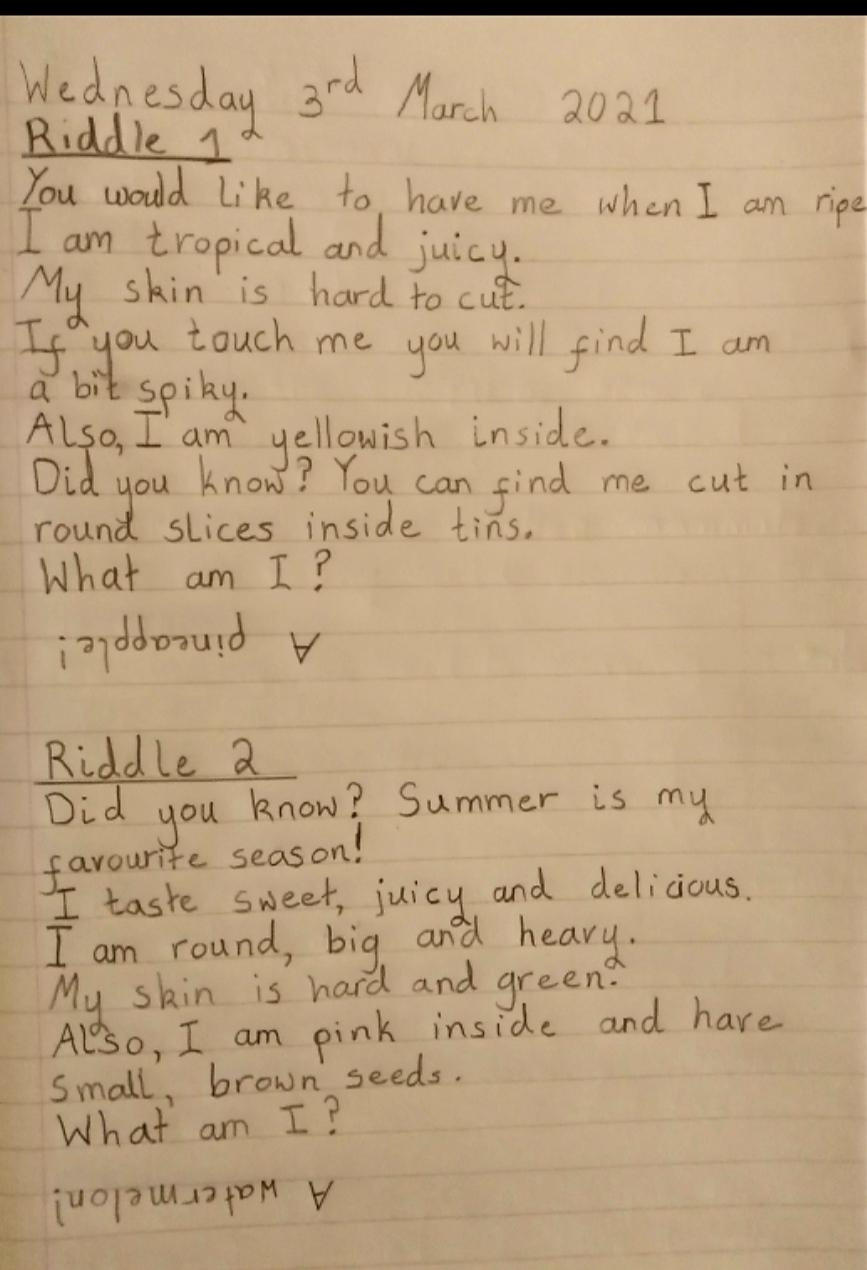 Wednesday 3rd March 2021
Riddle 1
You would like to have me when I am ripe
I am tropical and juicy.
My skin is hard to cut.
If you touch me you will find I am
a bit spiky.
Also, I am yellowish inside.
Did you know? You can find me cut in
round slices inside tins.
What am I?
A pineapple!
Riddle 2
Did you know? Summer is my
favourite season!
I taste sweet, juicy and delicious.
I am round, big and heavy.
My skin is hard and green.
Also, I am pink inside and have
small, brown seeds.
What am I?
A watermelon!